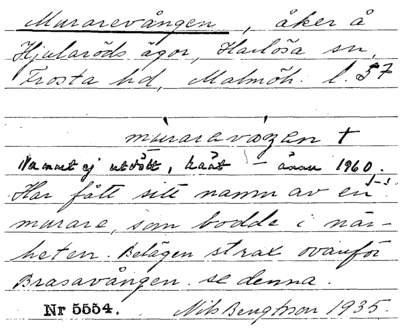 Murarevången, åker å
Hjularöds ägor, Harlösa sn,
Frosta hd, Malmöh. l. 57
murarevåŋen †
Namnet ej utdött, hört – ännu 1960.
Har fått sitt namn av en
murare, som bodde i när-
heten. Belägen strax ovanför
Brasavången. se denna.
Nr 5554. Nils Bengtsson 1935.